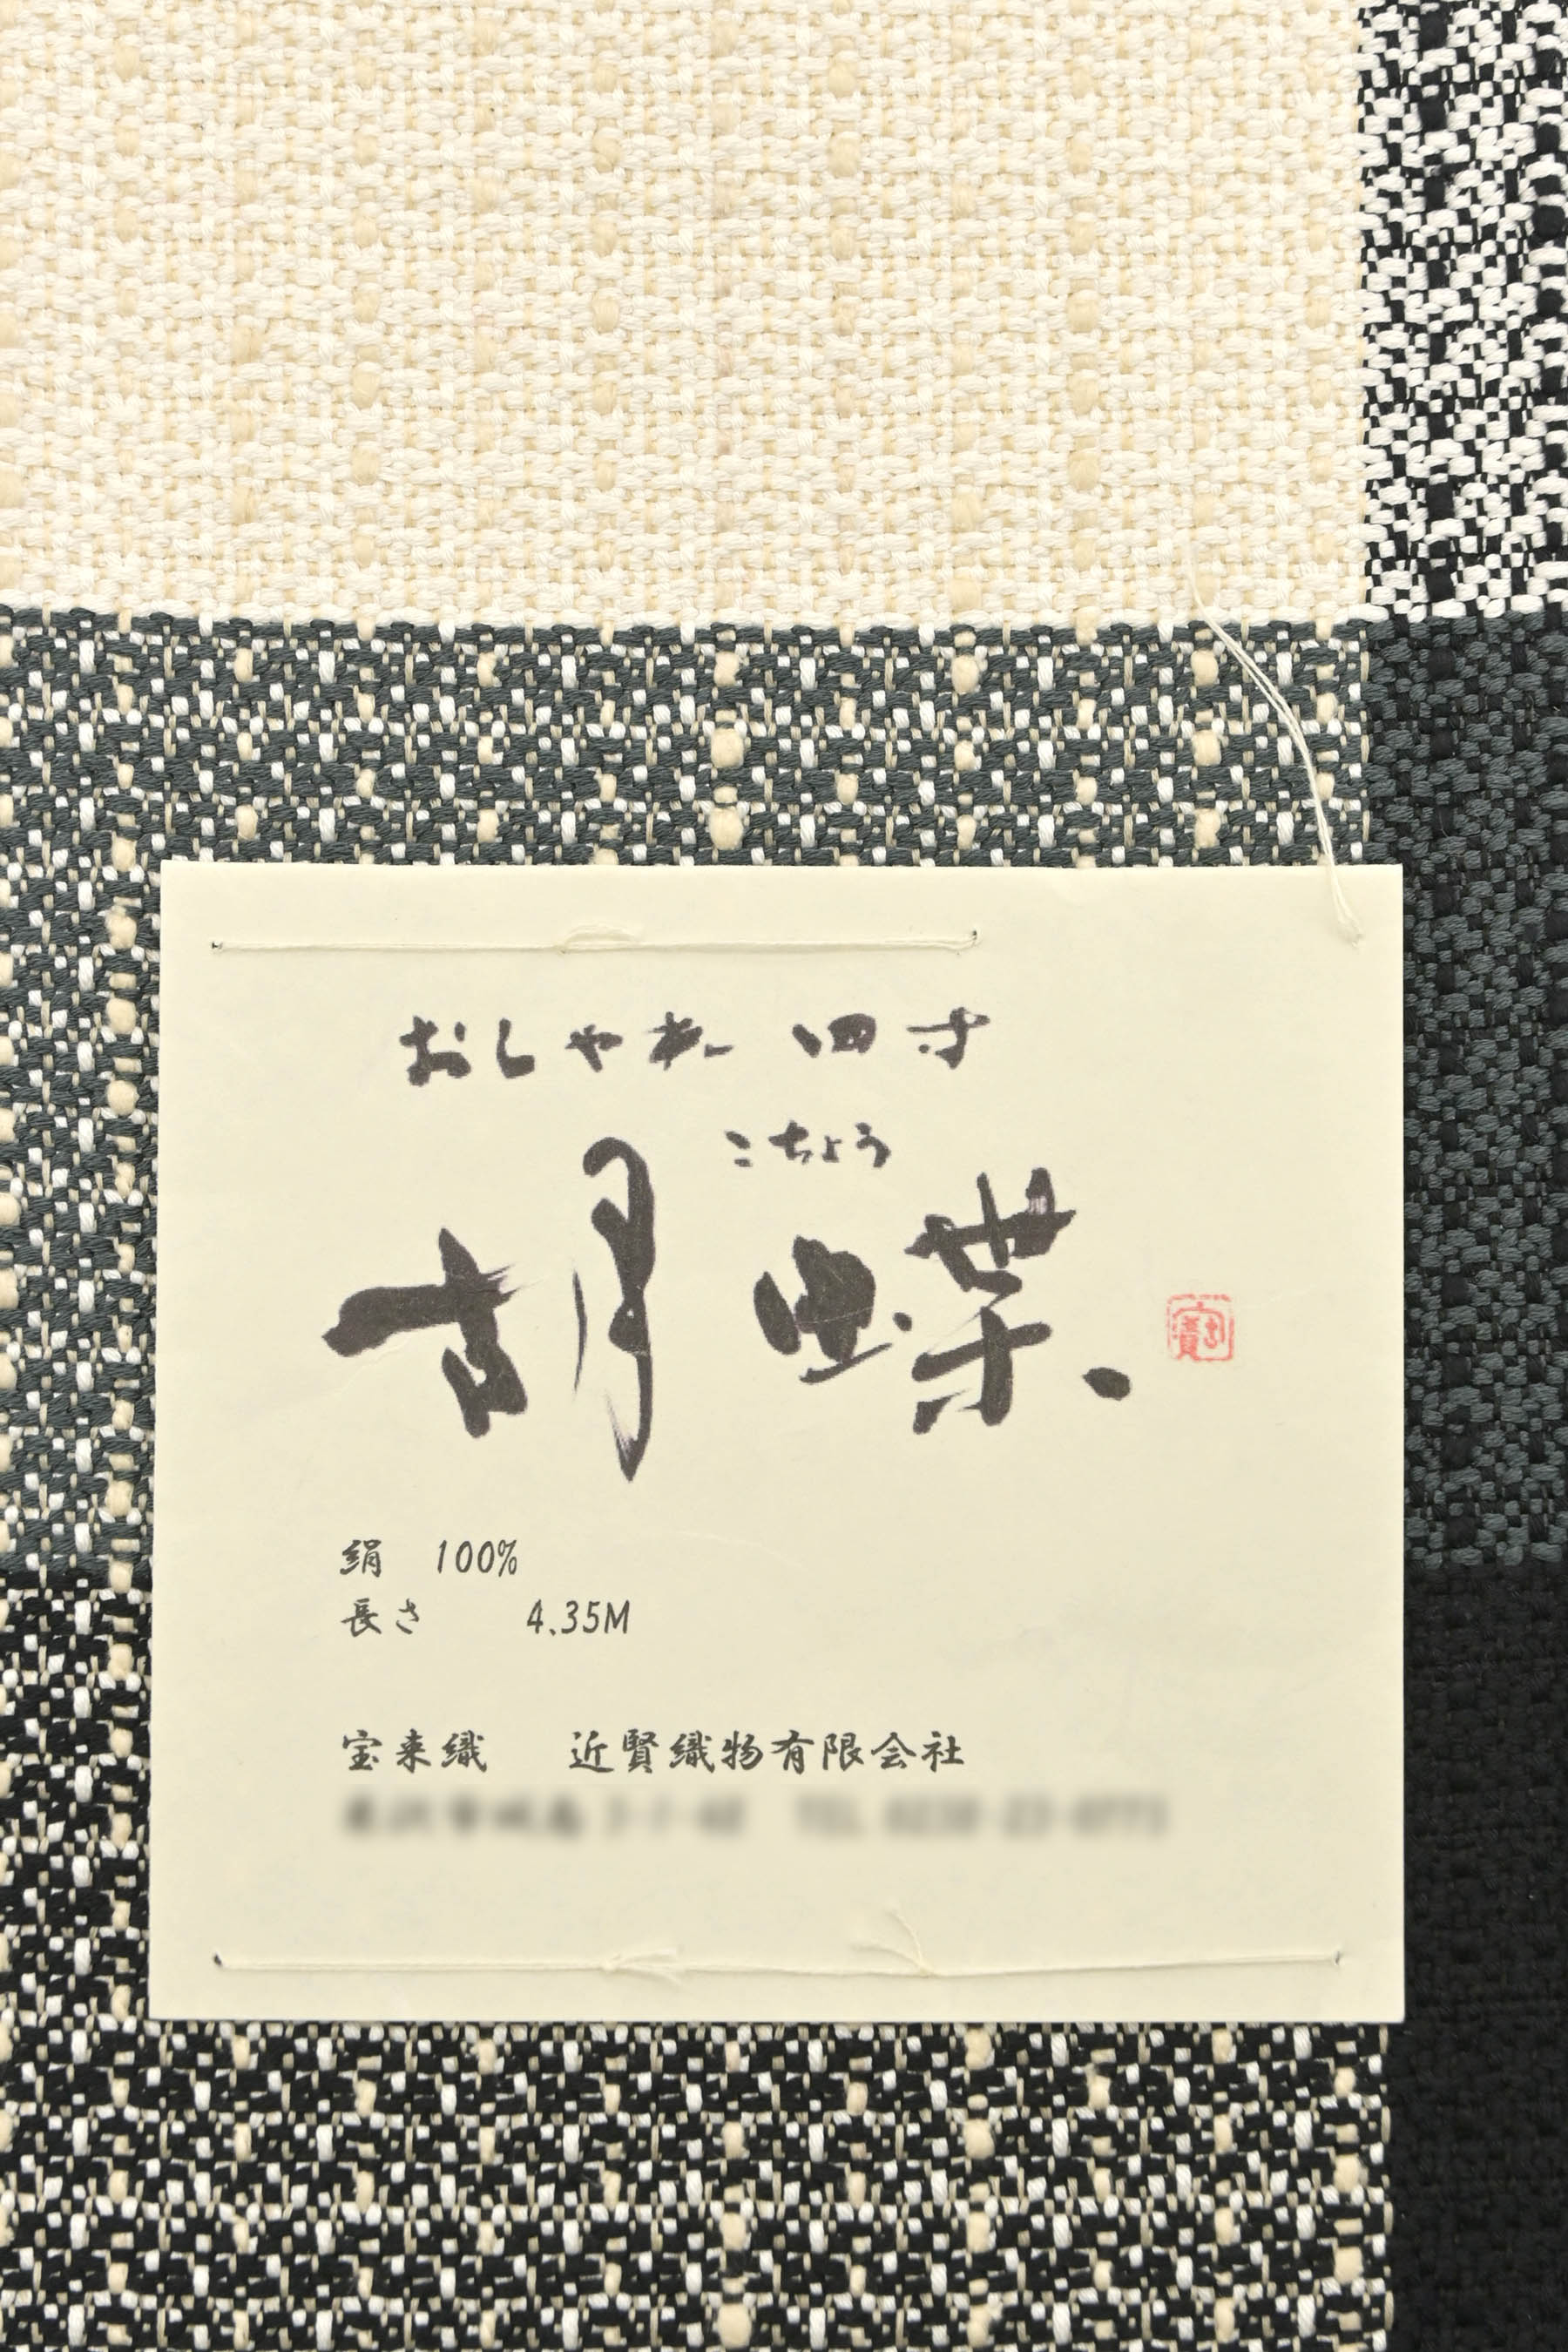 おしゃれ 四寸
こちょう
胡蝶
絹 100%
長さ 4.35M
宝来織 近賢織物有限会社